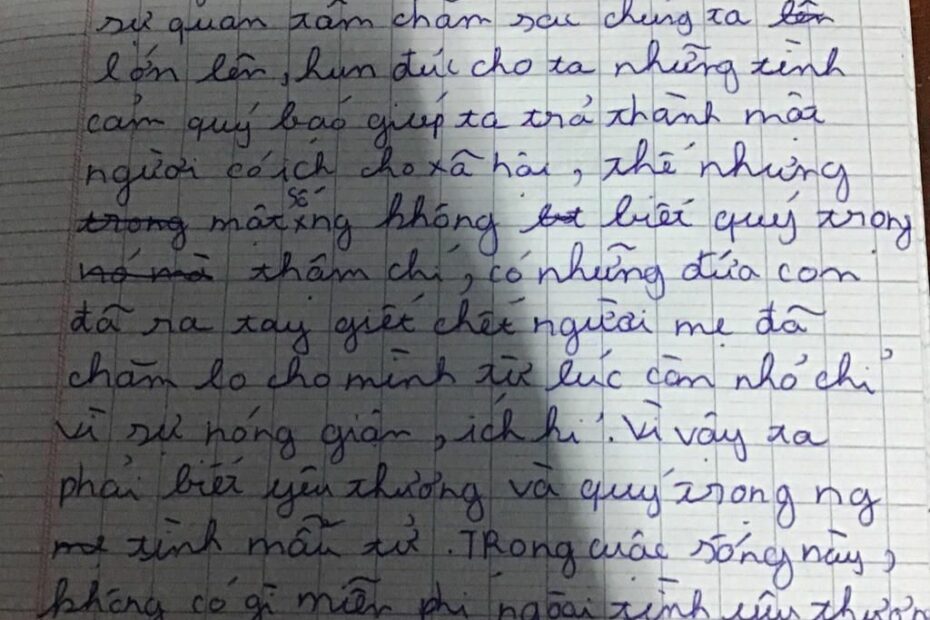 sự quan tâm chăm sóc chúng ta lên
lớn lên, hun đúc cho ta những tình
cảm quý báo giúp ta trở thành một
người có ích cho xã hội, thế nhưng
trong một số ng không biết quý trọng
nó mà thậm chí, có những đứa con
đã ra tay giết chết người mẹ đã
chăm lo cho mình từ lúc còn nhỏ chỉ
vì sự nóng giận, ích kỉ. Vì vậy ta
phải biết yêu thương và quý trọng ng
tình mẫu tử. TRong cuộc sống này,
không có gì miễn phí ngoài tình yêu thương